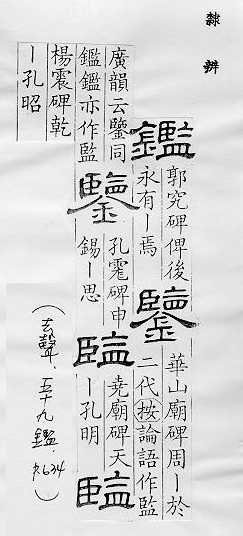 隸辨
鑑
郭究碑俾後
永有ー焉
鑒
華山廟碑周ー於
二代按論語作監
廣韻云鑒同
鑑鑑亦作監
鑒
孔碑申
錫ー思
監
堯廟碑天
ー孔明
監
楊震碑乾
ー孔昭
(去聲. 五十九鑑. p.634)